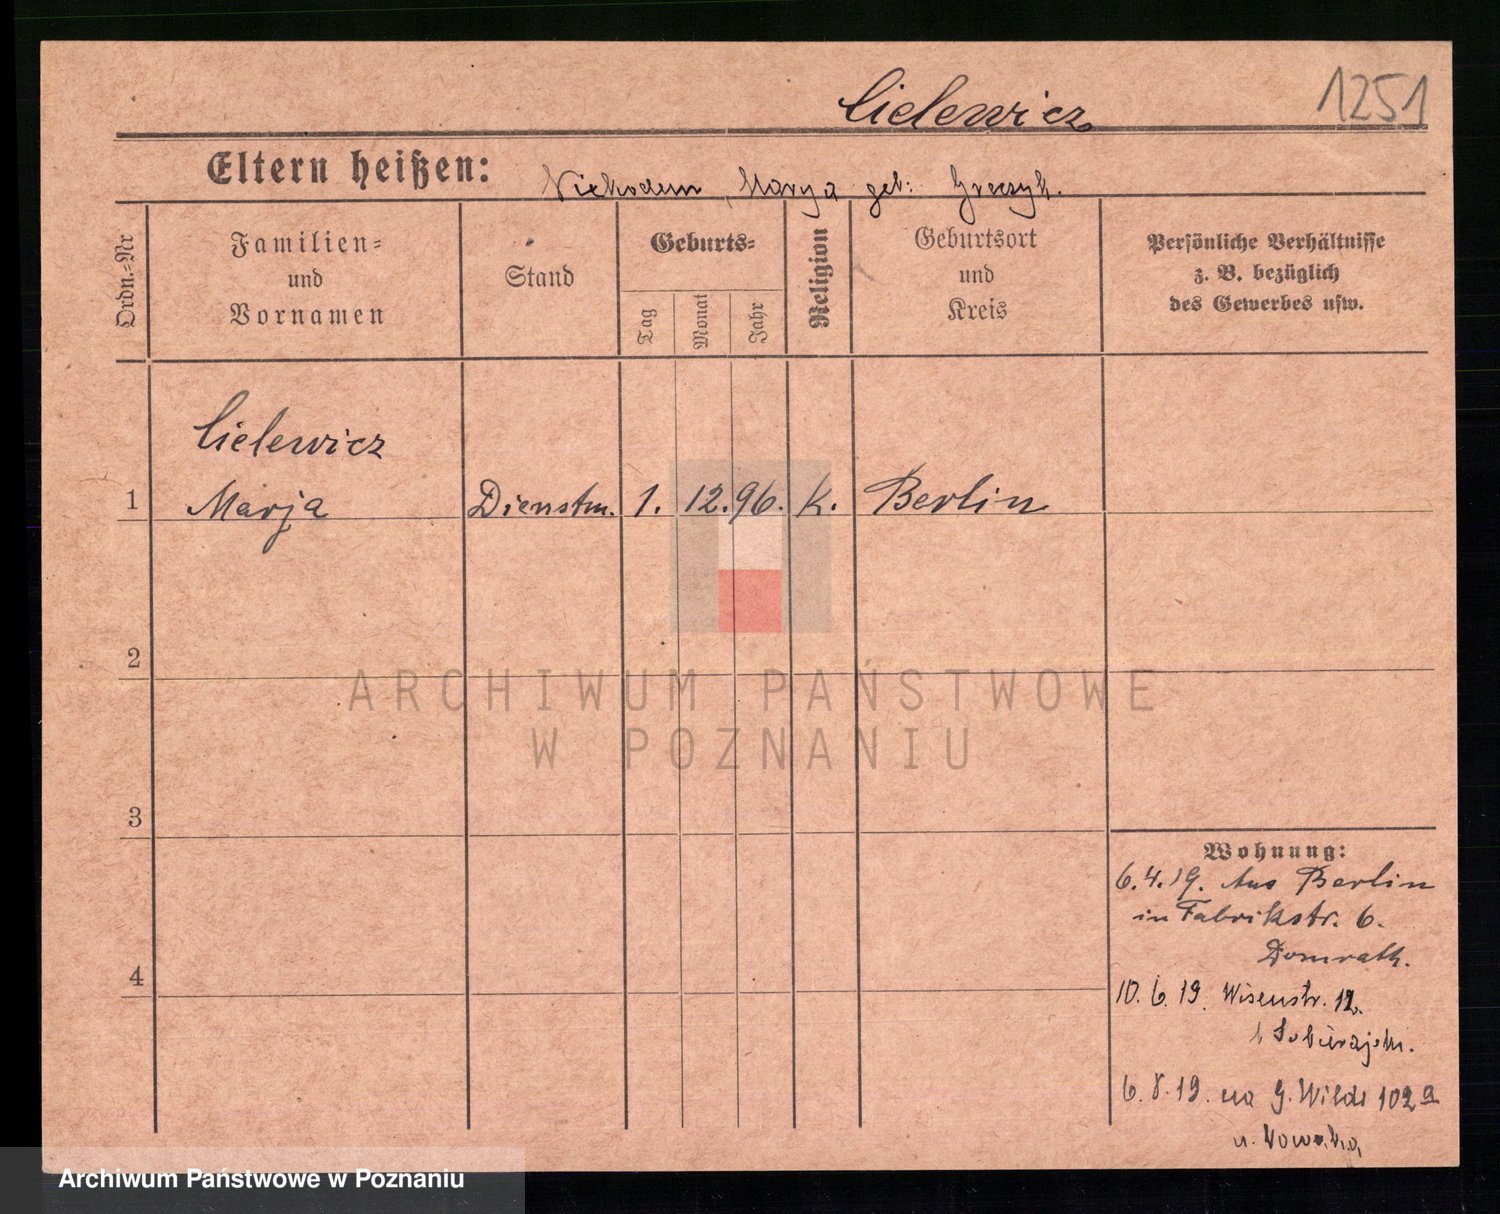 Cielewicz
1251
Eltern heißen: Nickodem, Marya geb: Greczyk.
Ordn.=Nr
Familien=
und
Vornamen
Stand
Geburts=
Tag
Monat
Jahr
Religion
Geburtsort
und
Kreis
Persönliche Verhältnisse
z. B. bezüglich
des Gewerbes usw.
Cielewicz
1 Marja Dienstm. 1. 12. 96. K. Berlin
2
3
4
Wohnung:
6.4.19. Aus Berlin
in Fabrikstr. 6.
Domrath.
10.6.19. Wisenstr. 12.
b Sobierajski.
6.8.19. na G. Wilde 102a
u. Nowaka
ARCHIWUM PAŃSTWOWE
W POZNANIU
Archiwum Państwowe w Poznaniu